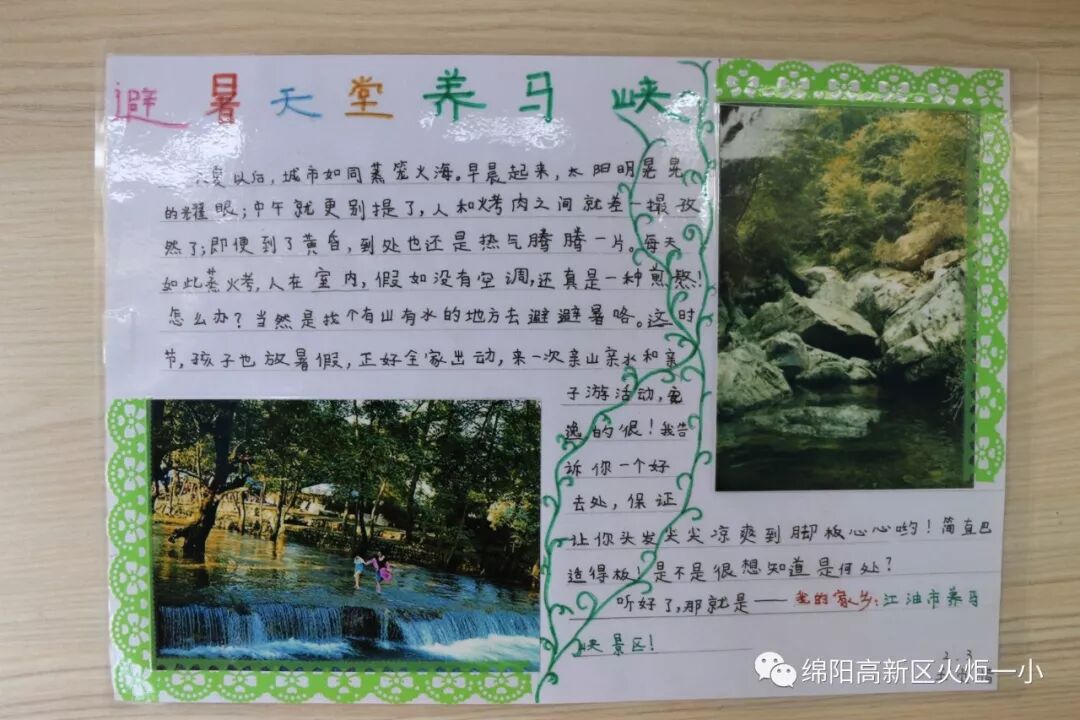 避暑天堂养马峡
夏以后,城市如同蒸笼火海。早晨起来,太阳明晃晃
的耀眼;中午就更别提了,人和烤肉之间就差一撮孜
然了;即便到了黄昏,到处也还是热气腾腾一片。每天
如此蒸烤,人在室内,假如没有空调,还真是一种煎熬!
怎么办?当然是找个有山有水的地方去避避暑咯。这时
节,孩子也放暑假,正好全家出动,来一次亲山亲水和亲
子游活动,
逸的很!我告
诉你一个好
去处,保证
让你头发尖尖凉爽到脚板心心哟!简直巴
适得板!是不是很想知道是何处?
听好了,那就是——我的家乡:江油市养马
峡景区!
2.3
绵阳高新区火炬一小